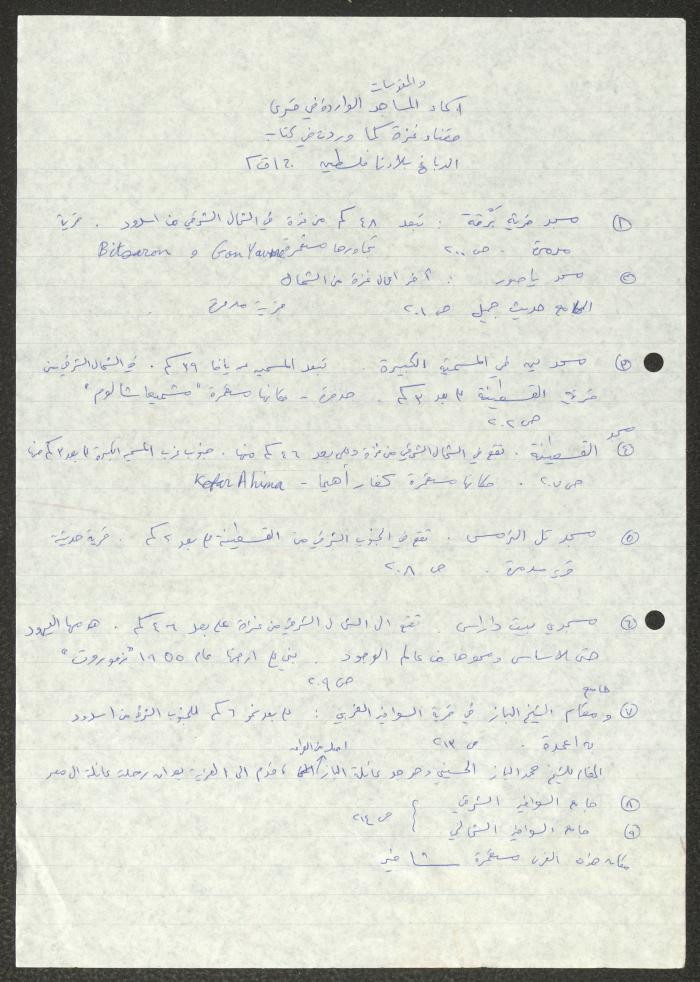 والمقدسات
اسماء المساجد الواردة في قرى
قضاء غزة كما وردت في كتاب
الدباغ بلادنا فلسطين ج١ ق٢
١ مسجد قرية بَرْقة : تبعد ٤٨ كم من غزة في الشمال الشرقي من اسدود . قرية
مدمرة . ص ٢٠٠ تجاورها مستعمرة Gan Yavne و Bitsaron
٢ مسجد ياصور : آخر اعمال غزة من الشمال
الجامع حديث جميل ص ٢٠١ قرية مدمرة
٣ مسجد في المسمية الكبيرة . تبعد المسمية عن يافا ٣٩ كم . في الشمال الشرقي من
قرية القسطينة على بعد ٣ كم . مدمرة - مكانها مستعمرة "مشميعا شالوم"
ص ٢٠٢
مسجد
٤ القسطينة . تقع في الشمال الشرقي من غزة وعلى بعد ٤٦ كم منها . جنوب غرب المسمية الكبيرة على بعد ٣ كم منها
ص ٢٠٧ . مكانها مستعمرة كفار أحيما - Kefar Ahima
٥ مسجد تل الترمس . تقع في الجنوب الشرقي من القسطينة على بعد ٢ كم . قرية حديثة
قرية مدمرة . ص ٢٠٨
٦ مسجدي بيت داراس . تقع الى الشمال الشرقي من غزة على بعد ٤٦ كم . هدمها اليهود
حتى الاساس ومحوها من عالم الوجود . بني على ارضها عام ١٩٥٥ "زموروت"
ص ٢٠٩
جامع
٧ ومقام الشيخ الباز في قرية السوافير الغربي : على بعد نحو ٦ كم للجنوب الشرقي من اسدود
به اعمدة . ص ٢١٣ اصله من العراق
المقام للشيخ محمد الباز الحسيني وهو جد عائلة الباز قدم الى القرية بعد ان رحلت عائلة ال
٨ جامع السوافير الشرقي
٩ جامع السوافير الشمالي } ص ٢١٤
مكان هذه القرى مستعمرة شافير